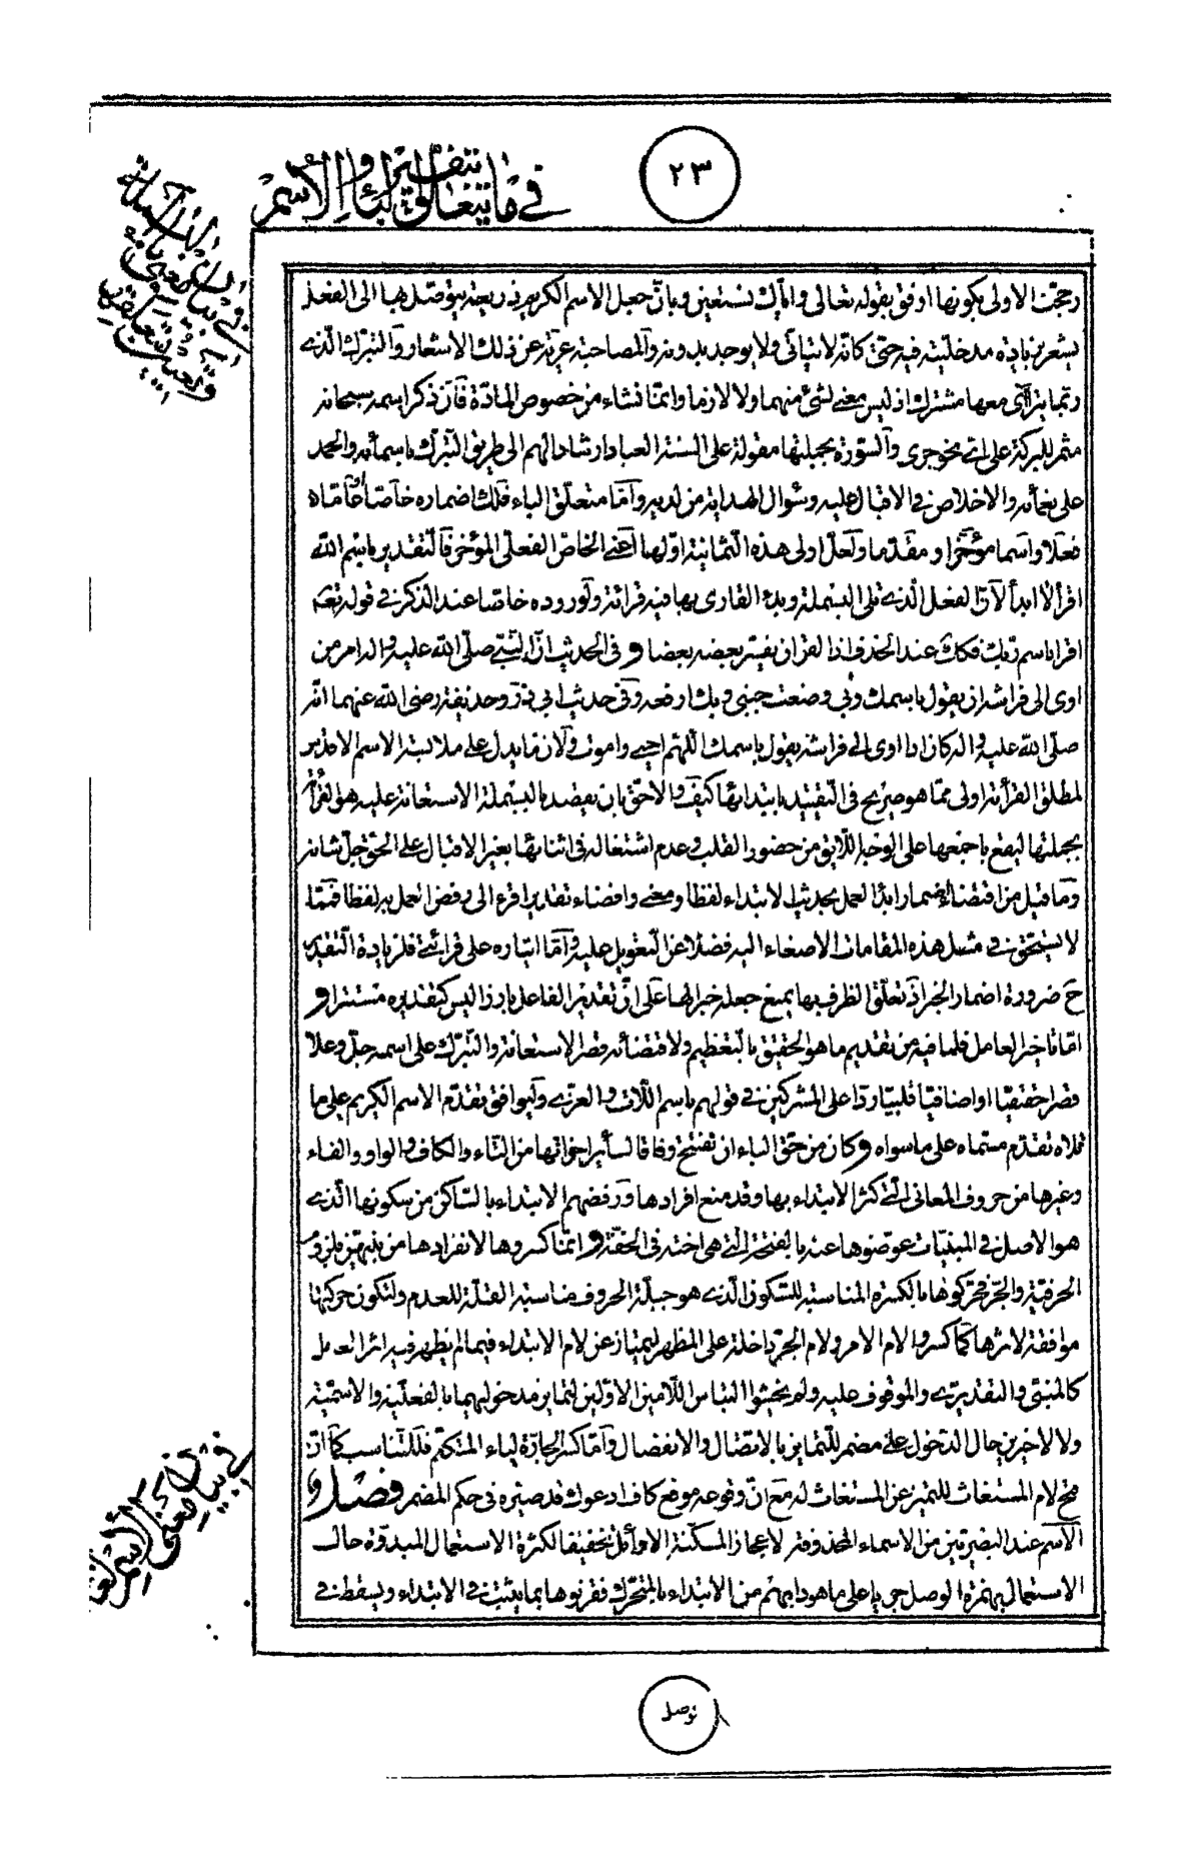 ٢٣
في ما يتعلق بتفسير الباء والاسم
رجحت الاولى بكونها اوفق بقوله تعالى واياك نستعين وبان جعل الاسم الكريم ذريعة يتوصل بها الى الفعل
يشعر بزيادة مدخلية فيه حتى كانه لا يتاتى ولا يوجد بدونه والمصاحبة عرية عن ذلك الاشعار والتبرك الذي
معها مشترك اذ ليس معنى لشئ منهما ولا لازما وانما نشاء من خصوص المادة فان ذكر اسمه سبحانه
مثمر للبركة على اي نحو جرى والسورة بجملتها مقولة على السنة العباد ارشادا لهم الى طريق التبرك باسمائه والحمد
على نعمائه والاخلاص في الاقبال عليه وسؤال الهداية من لديه واما متعلق الباء فلك اضماره خاصا او عاما
فعلا واسما مؤخرا ومقدما ولعل اولى هذه الثمانية اولها اعني الخاص الفعلي المؤخر فالتقدير باسم الله
اقرأ لا ابدأ لان الفعل الذي تلى البسملة وبدء القارى بها فيه قرائة ولوروده خاصا عند الذكر في قوله تعه
اقرا باسم ربك فكك عند الحذف اذ القران يفسر بعضه بعضا و في الحديث ان النبي صلى الله عليه واله امر من
اوى الى فراشه ان يقول باسمك ربي وضعت جنبي وبك ارفعه وفي حديث ابي ذر وحذيفة رضى الله عنهما انه
صلى الله عليه واله كان اذا اوى الى فراشه يقول باسمك اللهم احيى واموت ولان ما يدل على ملابسة الاسم الاقدس
لمطلق القرأئة اولى مما هو صريح في التقييد بابتدائها كيف والاحق بان يقصد بالبسملة الاستعانة عليه هو القرائة
بجملتها ليقع باجمعها على الوجه اللائق من حضور القلب وعدم اشتغاله في اثنائها بغير الاقبال على الحق جل شانه
وما قيل من اقتضاء اضمار ابدأ العمل بحديث الابتداء لفظا ومعنى واقتضاء تقدير اقرء الى رفض العمل به لفظا فمما
لا يستحق في مثل هذه المقامات الاصغاء اليه فضلا عن التعويل عليه واما ايثاره على قرائتي فلزيادة التقدير
ح ضرورة اضمار الخبر اذ تعلق الظرف بها يمنع جعله خبرا لها على ان تقدير الفاعل بارزا ليس كتقديره مستترا و
اما تاخير العامل فلما فيه من تقديم ما هو الحقيق بالتعظيم ولاقتضائه قصر الاستعانة والتبرك على اسمه جل وعلا
قصرا حقيقيا او اضافيا قلبيا ردا على المشركين في قولهم باسم اللات والعزى وليوافق تقدم الاسم الكريم على ما
تلاه تقدم مسماه على ما سواه وكان من حق الباء ان تفتح وفاقا لسائر اخواتها من التاء والكاف والواو والفاء
وغيرها من حروف المعاني التي كثر الابتداء بها وقد منع افرادها ورفضهم الابتداء بالساكن من سكونها الذي
هو الاصل في المبنيات عوضوها عنه بالفتحة التي هي اخته في الخفة و انما كسروها لانفرادها من بينهن بلزوم
الحرفية والجر فحركوها بالكسرة المناسبة للسكون الذي هو جبلة الحروف مناسبة القلة للعدم ولتكون حركتها
موافقة لاثرها كما كسروا لام الامر ولام الجر داخلة على المظهر ليمتاز عن لام الابتداء فيما لم يظهر فيه اثر العامل
كالمبنى والتقديرى والموقوف عليه ولم يخشوا التباس اللامين الاولين لتمايز مدخوليهما بالفعلية والاسمية
ولا الاخرين حال الدخول على مضمر للتمايز بالاتصال والانفصال واما كسر الجارة لياء المتكلم فللتناسب كما ان
فتح لام المستغاث للتميز عن المستغاث له مع ان وقوعه موقع كاف ادعوك قد صيره في حكم المضمر فصل و
الاسم عند البصريين من الاسماء المحذوفة الاعجاز المسكنة الاوائل تخفيفا لكثرة الاستعمال المبدوة حال
الاستعمال بهمزة الوصل جريا على ما هو دابهم من الابتداء بالمتحرك فقرنوها بما يثبت في الابتداء ويسقط في
توصل